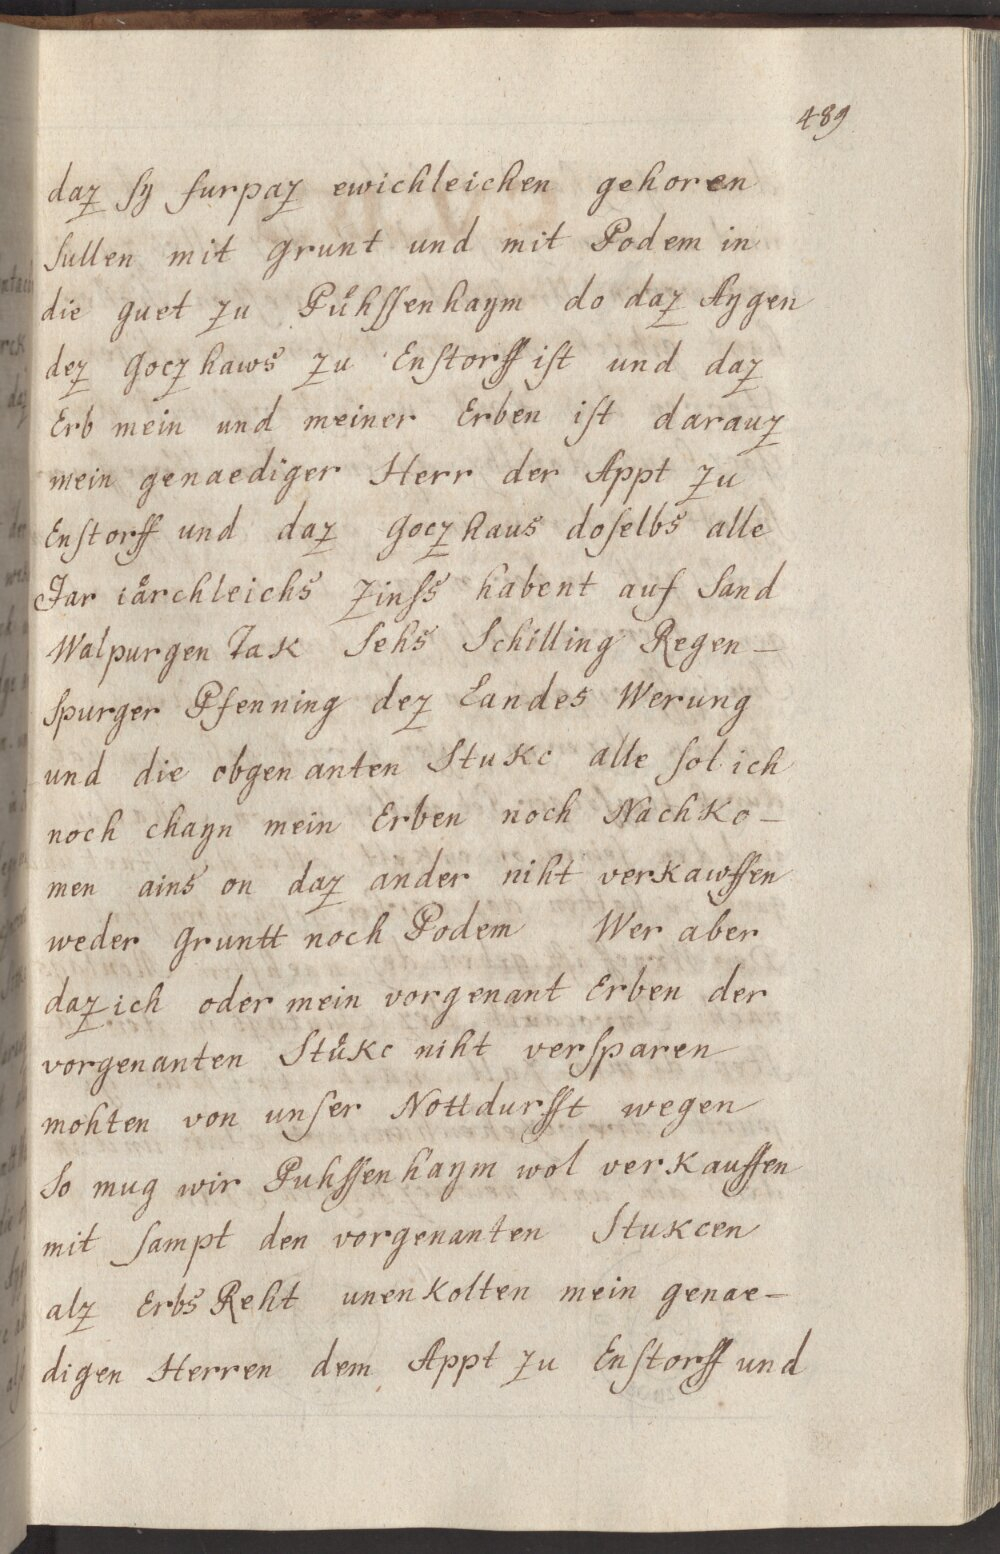 489
daz sy furpaz ewichleichen gehoren
sullen mit Grunt und mit Podem in
die guet zu Půhssenhaym do daz Aygen
dez Goczhaws zu Enstorff ist und daz
Erb mein und meiner Erben ist darauz
mein genaediger Herr der Appt zu
Enstorff und daz Goczhaus doselbs alle
Jar iårchleichs Zinss habent auf Sand
Walpurgen Tak Sehs Schilling Regen-
spurger Pfenning dez Landes Werung
und die obgenanten Stukc alle sol ich
noch chayn mein Erben noch Nachko-
men ains on daz ander niht verkawffen
weder Gruntt noch Podem Wer aber
daz ich oder mein vorgenant Erben der
vorgenanten Stůkc niht versparen
mohten von unser Nottdurfft wegen
So mug wir Puhssenhaym wol verkauffen
mit sampt den vorgenanten Stukcen
alz Erbs Reht unenkolten mein genae-
digen Herren dem Appt zu Enstorff und